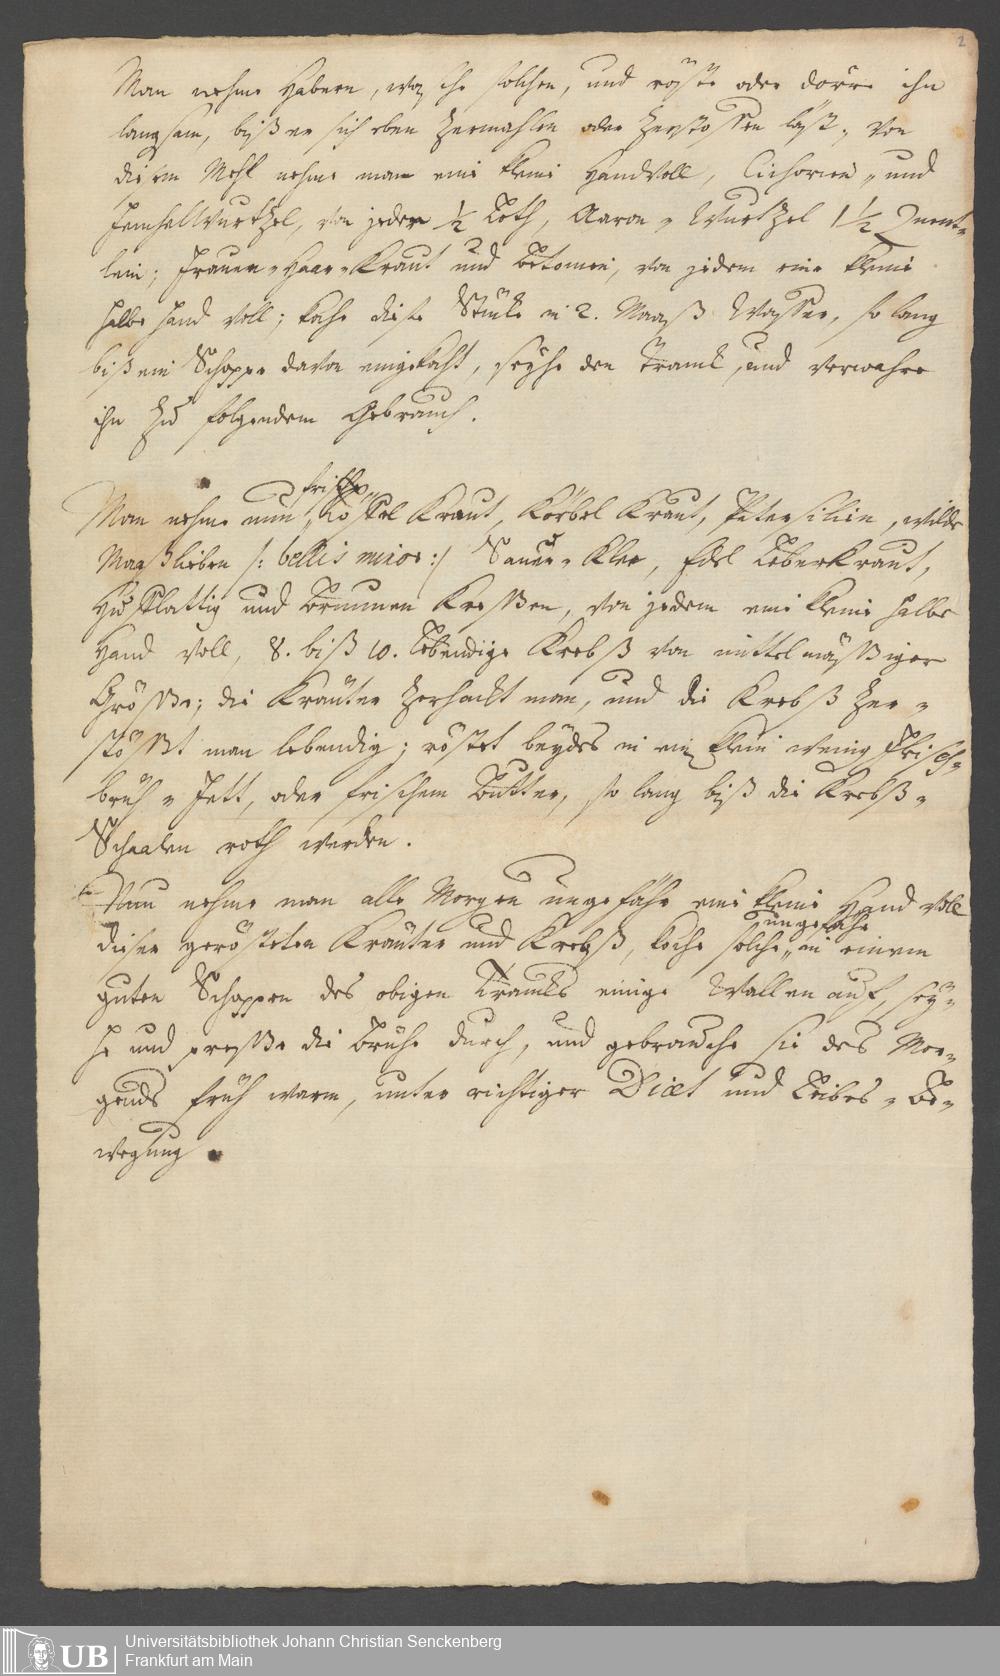 2
Man nehme Habern, wasche solchen, und röste oder dörre ihn
langsam, biß er sich eben zermahlen oder zerstossen läst; Von
diesem Mehl nehme man eine kleine Handvoll, Cichorien- und
Fenchelwurtzel, von jeder ½ Loth, Aaron-Wurtzel 1½ Quent-
lein; Frauen-Haar-Kraut und Betonien, von jedem eine kleine
halbe Hand voll; koche diese Stücke in 2. Maaß Wasser, so lang
biß ein Schoppe davon eingekocht, seyhe den Tranck, und verwahre
ihn zu folgendem Gebrauch.
Man nehme nun frisches Löffel Kraut, Körbel Kraut, Petersilien, wilde
Maaßlieben /: bellis minor :/ Sauer-Klee, Edel Leberkraut,
Hufflattig und Brunnen Kreßen, von jedem eine kleine halbe
Hand voll, 8. biß 10. lebendige Krebß von mittelmäßiger
Größe; die Kräuter zerhackt man, und die Krebß zer-
stößt man lebendig; röstet beydes in ein klein wenig Fleisch-
brüh-Fett, oder frischem Butter, so lang biß die Krebß-
Schaalen roth werden.
Nun nehme man alle Morgen ungefähr eine kleine Hand voll
dieser gerösteten Kräuter und Krebß, koche solche ungefähr in einem
guten Schoppen des obigen Trancks einige Wallen auf, sey-
he und presse die Brühe durch, und gebrauche sie des Mor-
gends früh warm, unter richtiger Diæt und Leibes-Be-
wegung.
UB
Universitätsbibliothek Johann Christian Senckenberg
Frankfurt am Main